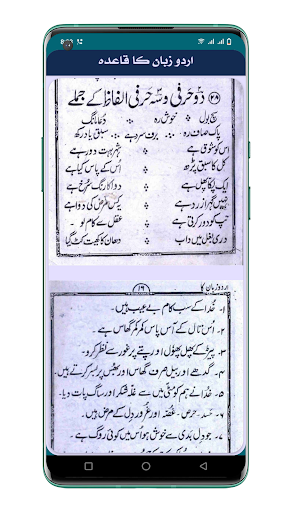 اردو زبان کا قاعدہ
دو حرفی و سہ حرفی الفاظ کے جملے
سچ بول خوش رہ دعا مانگ
پاک صاف رہ برف سرد ہے سبق یاد رکھ
اس کو ہے شہر بہت دور ہے
کل کا سبق پڑھ اُس کے پاس کیا ہے
ایک پکا پھل ہے دوا کا رنگ سُرخ ہے
کس مرض کی دوا ہے
تپ کو دور کرتی ہے عقل سے کام لو
دری بغل میں داب دھان کا کھیت کٹ گیا
اردو زبان کا ۱۶
۱۔ خدا کے سب کام بے عیب ہیں۔
۲۔ اس تال کے آس پاس کمر کمر گھاس ہے۔
۳۔ پیڑ کے پھل پھول اور پتے پر غور سے نظر کرو۔
۴۔ گدھے اور بیل صرف گھاس اور بھس پر بسر کرتے ہیں۔
۵۔ خدا نے ہم کو مٹی میں سے غلہ شکر اور ساگ پات دیا۔
۶۔ حسد۔ حرص۔ غصہ اور غرور دل کے مرض ہیں۔
۷۔ جو دل بدی سے خوش ہو اُس میں کوئی روگ ہے۔